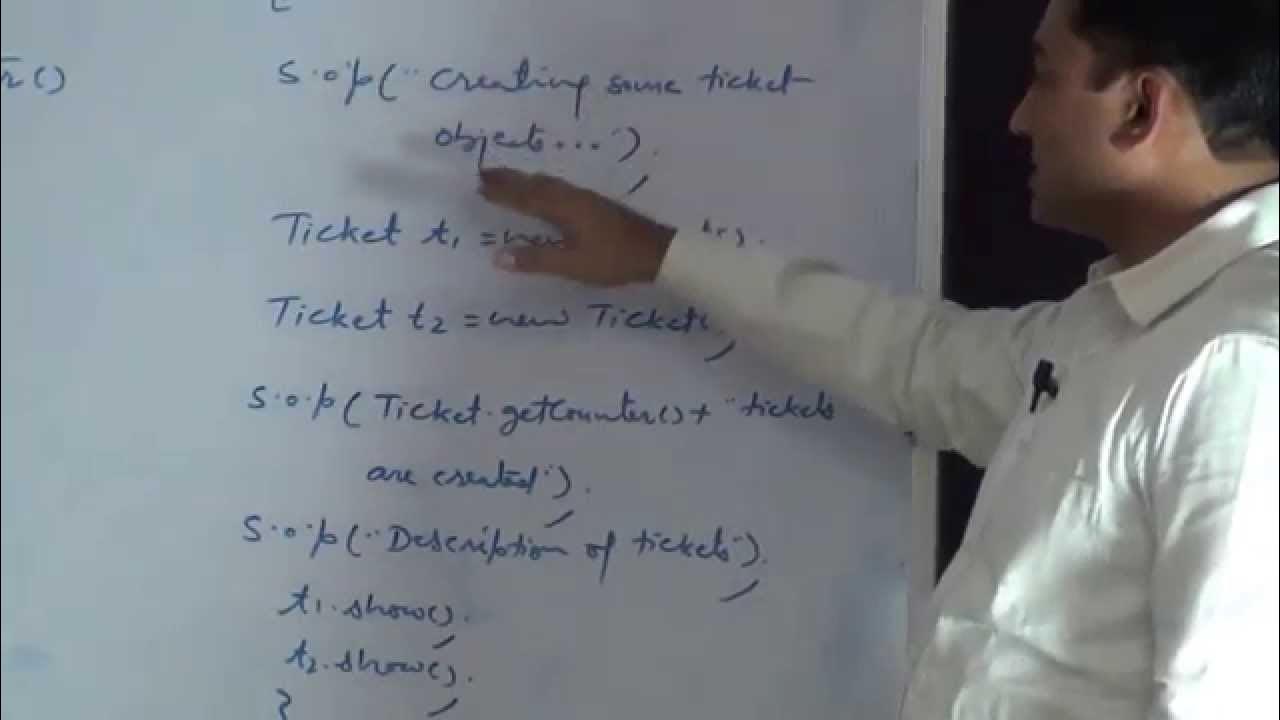 S.o.p("Creating some ticket
objects...");
Ticket t1 = new
Ticket t2 = new Ticket(
S.o.p(Ticket.getCounter()+ "tickets
are created");
S.o.p("Description of tickets");
t1.show();
t2.show();
}